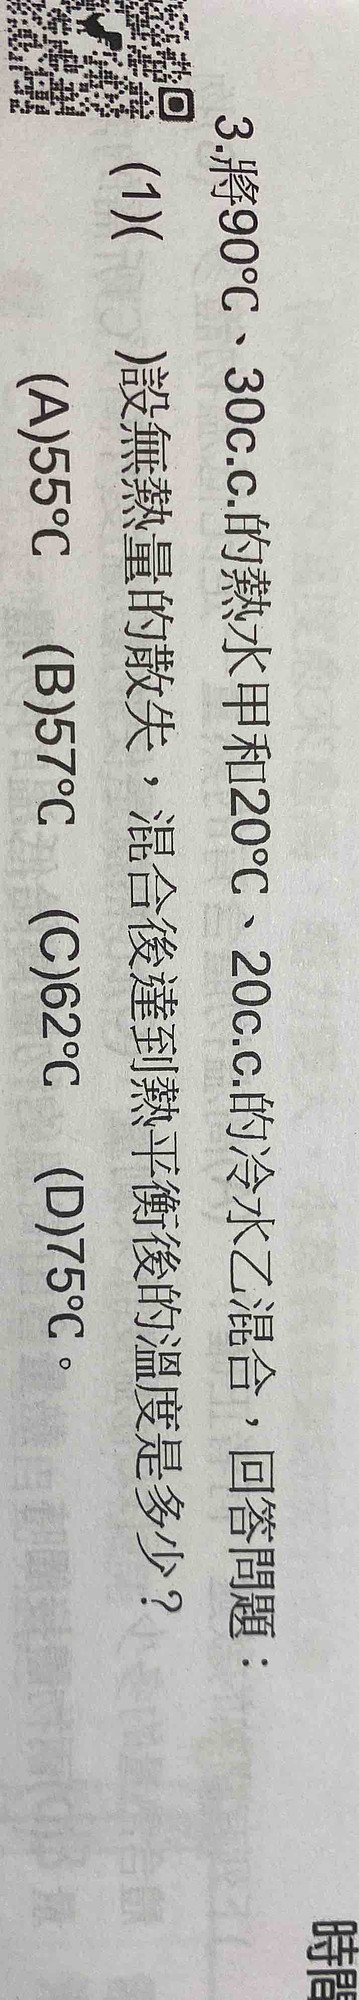 3.將90℃、30c.c.的熱水甲和20℃、20c.c.的冷水乙混合，回答問題：
(1)(　　)設無熱量的散失，混合後達到熱平衡後的溫度是多少？
(A)55℃　(B)57℃　(C)62℃　(D)75℃。
時間